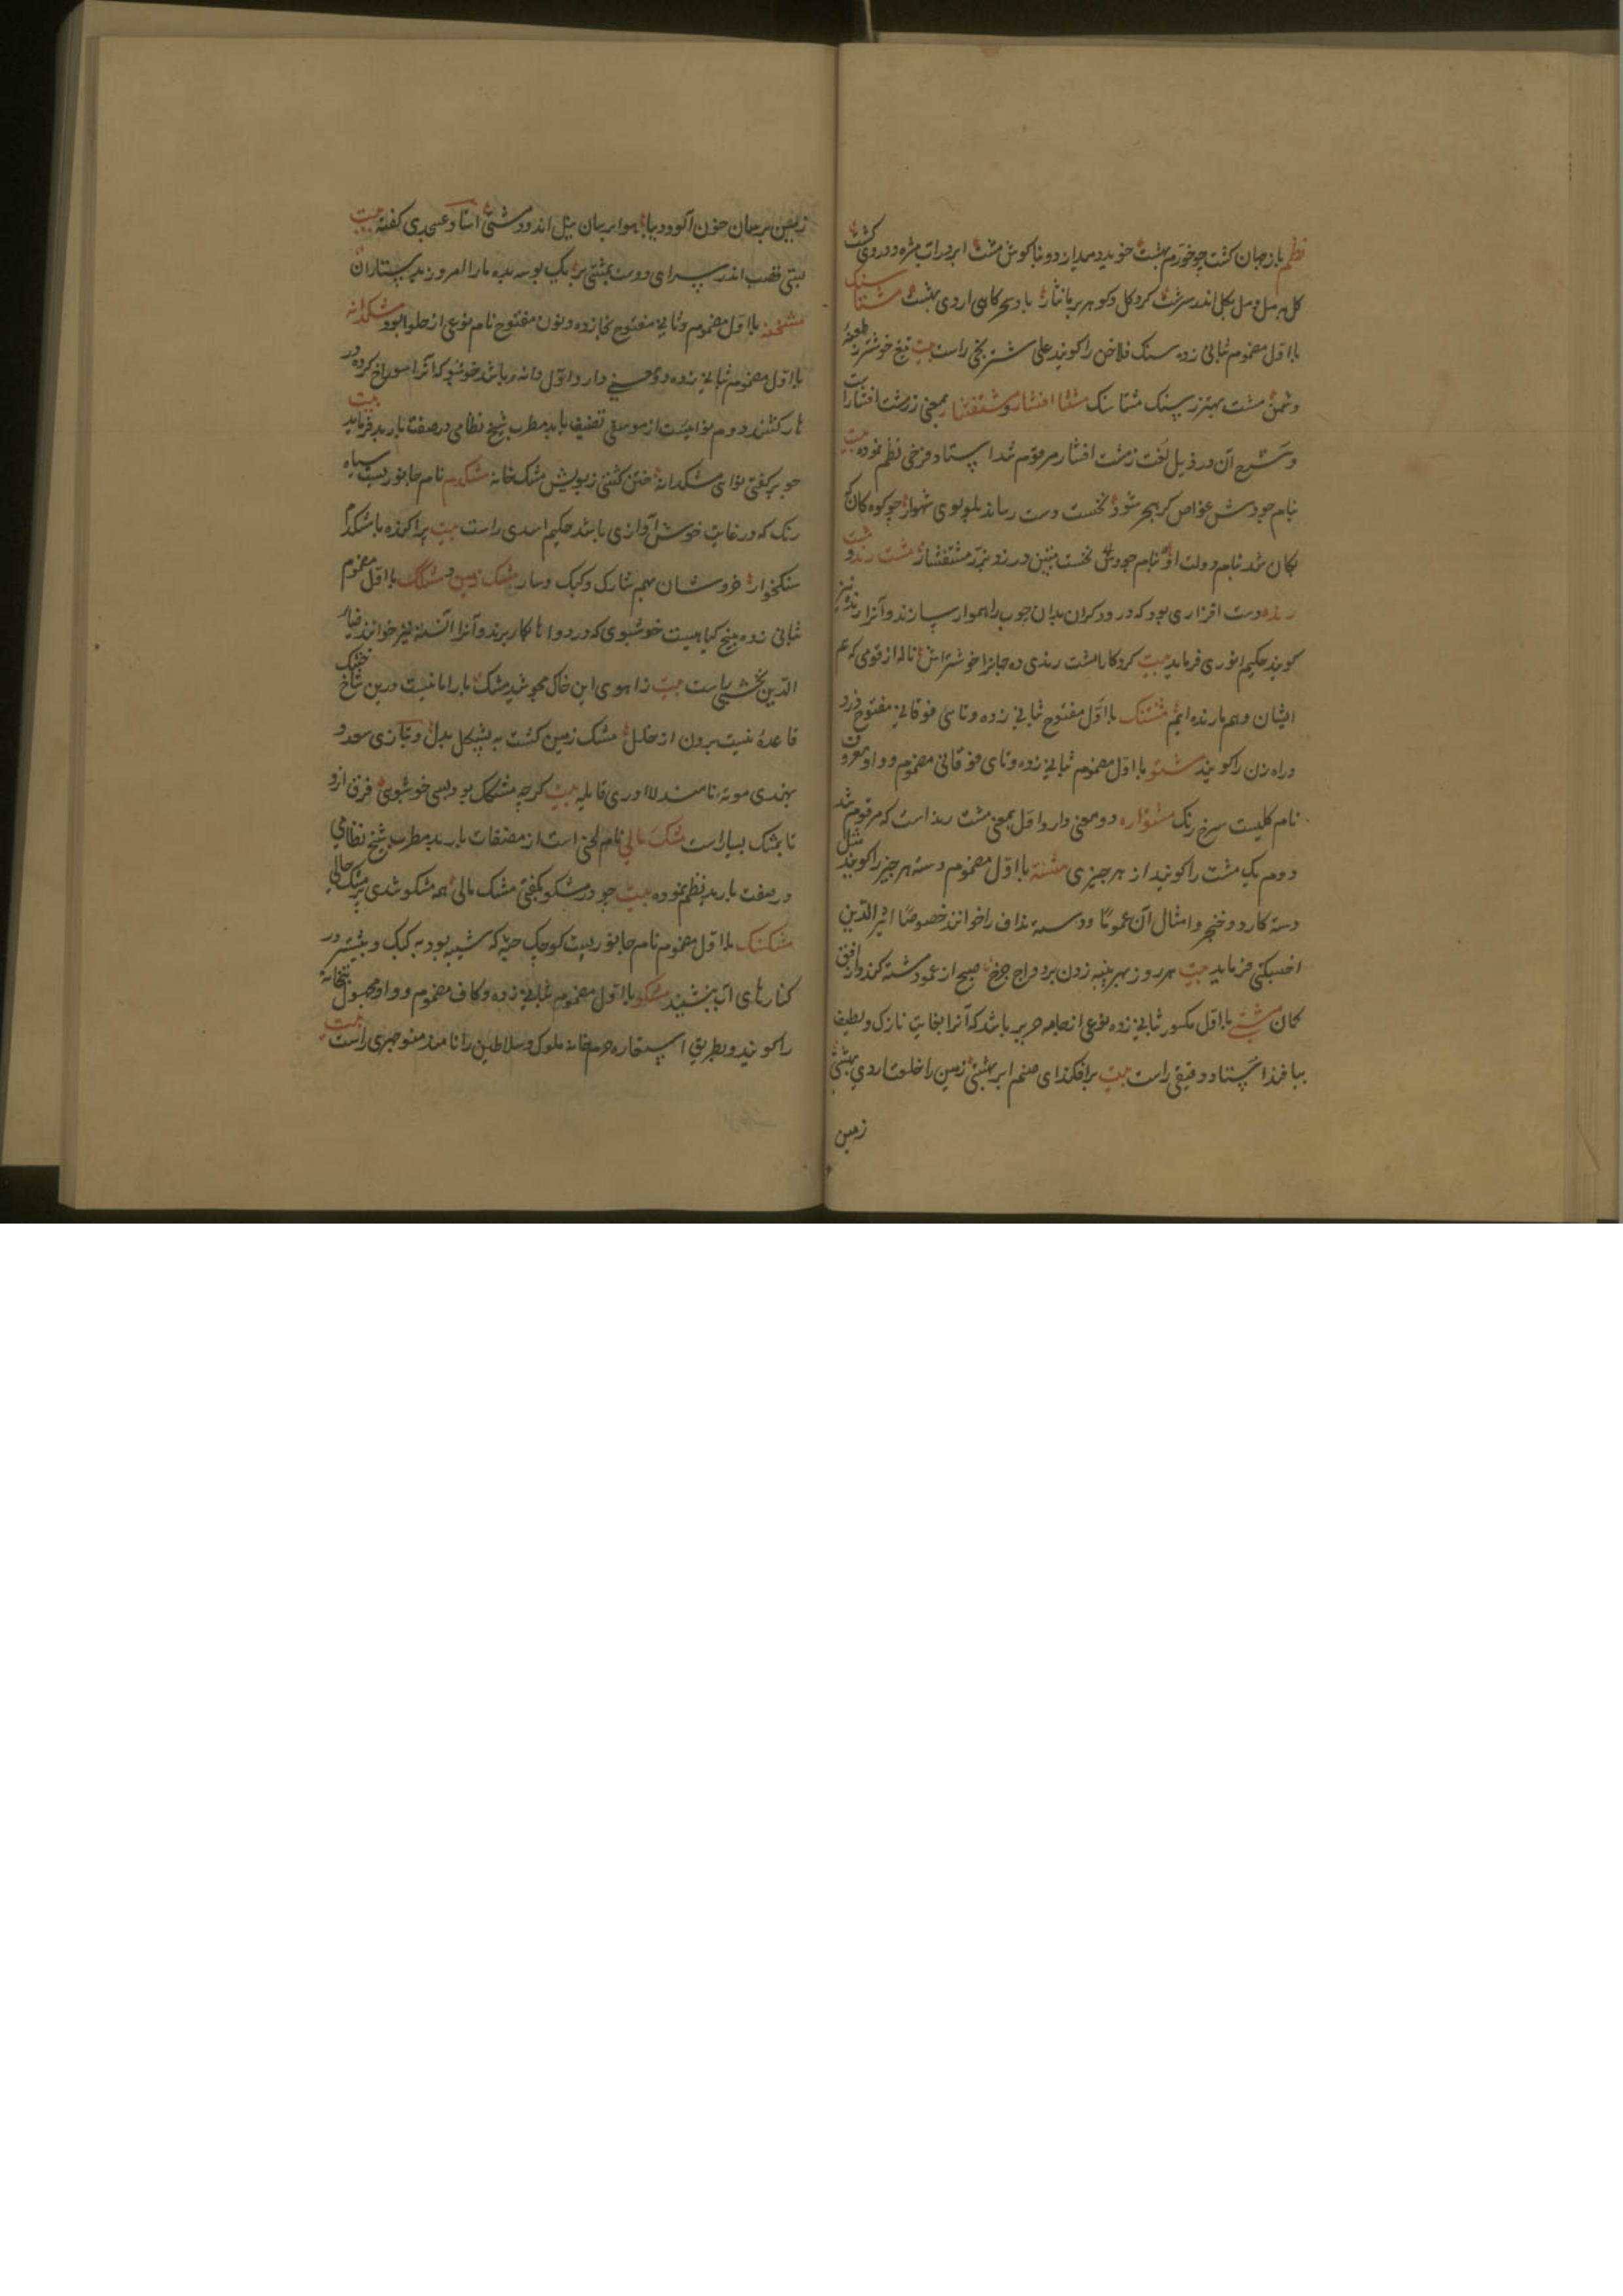 نظم باز جهان کشت چو خورّم بهشت خوید دمید از دو بناکوش مشت ابر برآب مژه در روی کشت
کل بر مل و مل بکل اندر سرشت کرد کل و کوهر بر ما نثار باد سحرکاهی اردی بهشت مشتا سنک
با اوّل مضموم بثانی زده سنک فلاخن را کویند علی شتربخی راست بیت تیغ خوشتر ز طعنهٔ
دشمن مشت بهتر ز سنک مشتا سنک مشتا افشار و مشتفشار بمعنی زرمشت افشار است
و شرح آن در ذیل لغت زرمشت افشار مرقوم شد استاد فرخی نظم نموده بیت
بنام جودش غوّاص کر ببحر شود نخست دست رساند بلولوی شهوار چو کوه کان کن
بکان شد بنام دولت او بنام جودش نخست متین در زند بزر مشتفشار مشت رند و مشت
رنده دست افزاری بود که درودکران بدان چوب را هموار سازند و آنرا رنده نیز
کویند حکیم انوری فرماید بیت کرد کارا مشت رندی ده جهانرا خوشتراش ناله از قومی که هم
ایشان و هم ما رنده ایم مشتنک با اوّل مفتوح بثانی زده و تای فوقانی مفتوح دزد
و راه زن را کویند مشتو با اوّل مضموم بثانی زده و تای فوقانی مضموم و واو معروف
نام کلیست سرخ رنک مشتواره دو معنی دارد اوّل بمعنی مشت رند است که مرقوم شد
دوم یک مشت را کویند از هر چیزی مشته با اوّل مضموم دستهٔ هر چیز را کویند مثل
دستهٔ کارد و خنجر و امثال آن عموما و دستهٔ ندّاف را خوانند خصوصا اثیر الدین
اخسیکتی فرماید بیت هر روز بهر پنبه زدن بر دواج چرخ صبح از عمود مشته کند و از افق
کمان مشتی با اوّل مکسور بثانی زده نوعی از جامه حریر باشد که آنرا بغایت نازک و لطیف
ببافند استاد دقیقی راست بیت برافکند ای صنم ابر بهشتی زمین را خلعت اردی بهشتی
زمین
زمین برسان خون آلود دیبا هوا برسان نیل اندود مشتی استاد عسجدی کفته بیت
بتی قصب اندر سرای دوست بمشتی بر یک بوسه بده ما را امروز
مشخنه با اوّل مضموم و ثانی مفتوح بخا زده و نون مفتوح نام نوعی از حلوا بود مشکدانه
با اوّل مضموم بثانی زده دو معنی دارد اوّل دانه باشد خوشبو که آنرا سوراخ کرده در
تار کشند دوم نوائیست از موسیقی تصنیف باربد مطرب شیخ نظامی در صفت باربد فرماید بیت
چو برکفتی نوای مشکدانه ختن کشتی ز بویش مشک خانه مشکدم نام جانوریست سیاه
رنک که در غایت خوش آوازی باشد حکیم اسدی راست بیت پراکنده با مشکدم
سنکخوار خروشان بهم شارک و کبک و سار مشک زمین و مشکک با اوّل مضموم
بثانی زده بیخ کیاهیست خوشبوی که در دواها بکار برند و آنرا اشنه نیز خوانند ضیاء
الدین نخشبی راست بیت ز اهوی این خاک مجوئید مشک ما را ما نیست درین شاخ خشک
قاعدهٔ نیست برون از خلل مشک زمین کشت به بشکل بدل و بتازی سعد و
بهندی موتهه نامند لا ادری قایله بیت کرچه مشکک بود بسی خوشبوی فرق ازو
تا بمشک بسیار است مشک مالی نام لحنی است از مصنفات باربد مطرب شیخ نظامی
در صفت باربد نظم نموده بیت چو در مشکو بکفتی مشک مالی همه مشکو شدی پر مشک حالی
مشکنک با اوّل مضموم نام جانوریست کوچک جثه که شبیه بود به کبک و بیشتر در
کنارهای آب نشیند مشکو با اوّل مضموم بثانی زده و کاف مضموم و واو مجهول بتخانه
را کویند و بطریق استعاره حرمخانه ملوک و سلاطین را نامند منوچهری راست بیت